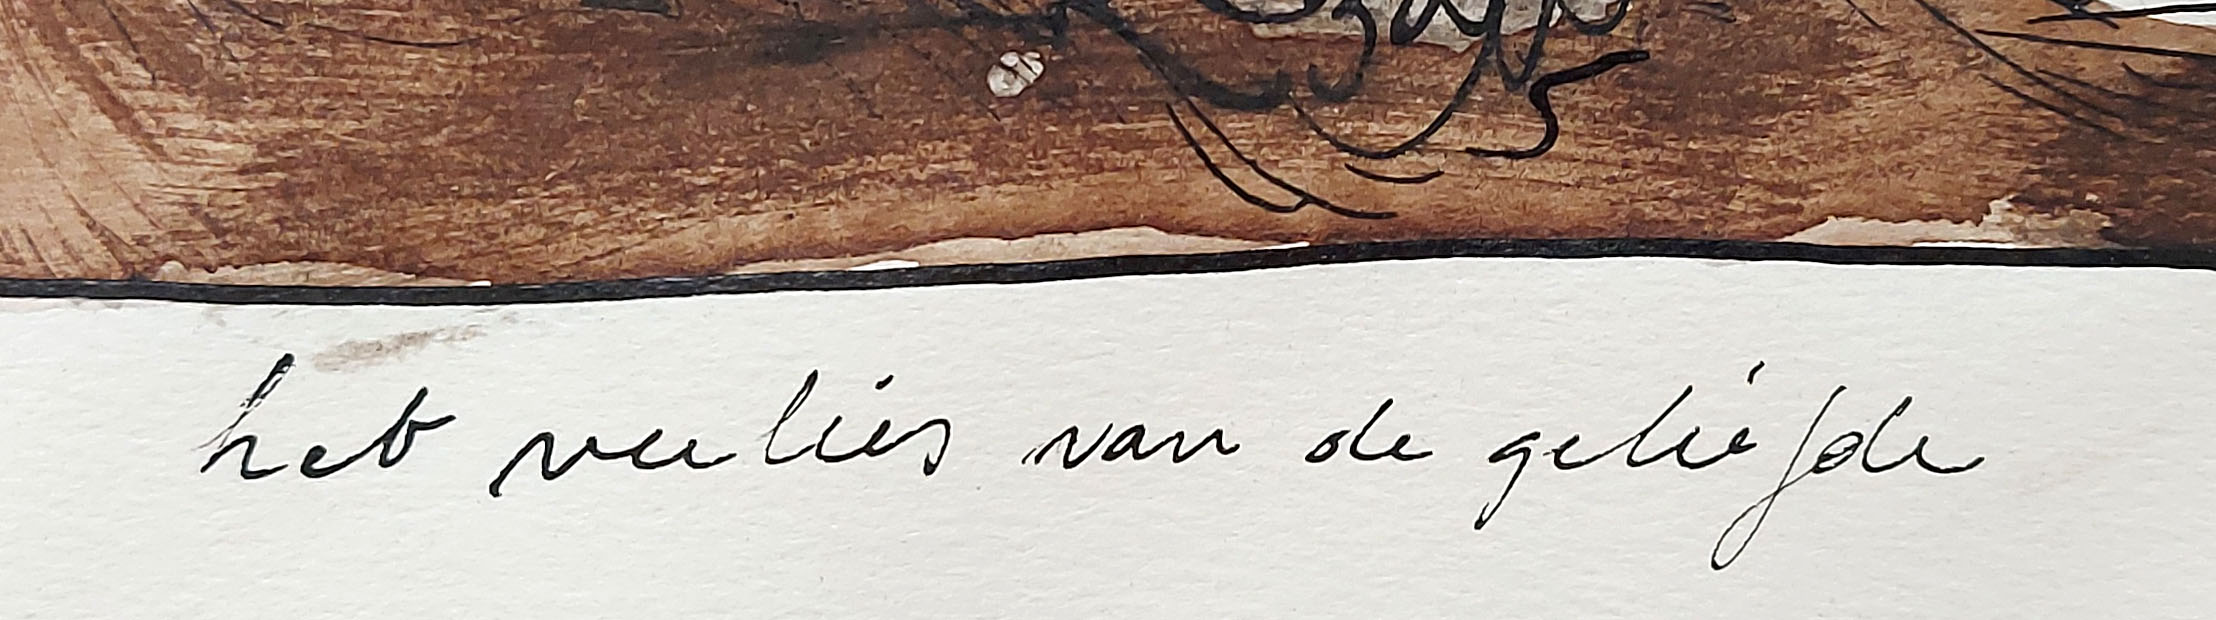 het verlies van de geliefde